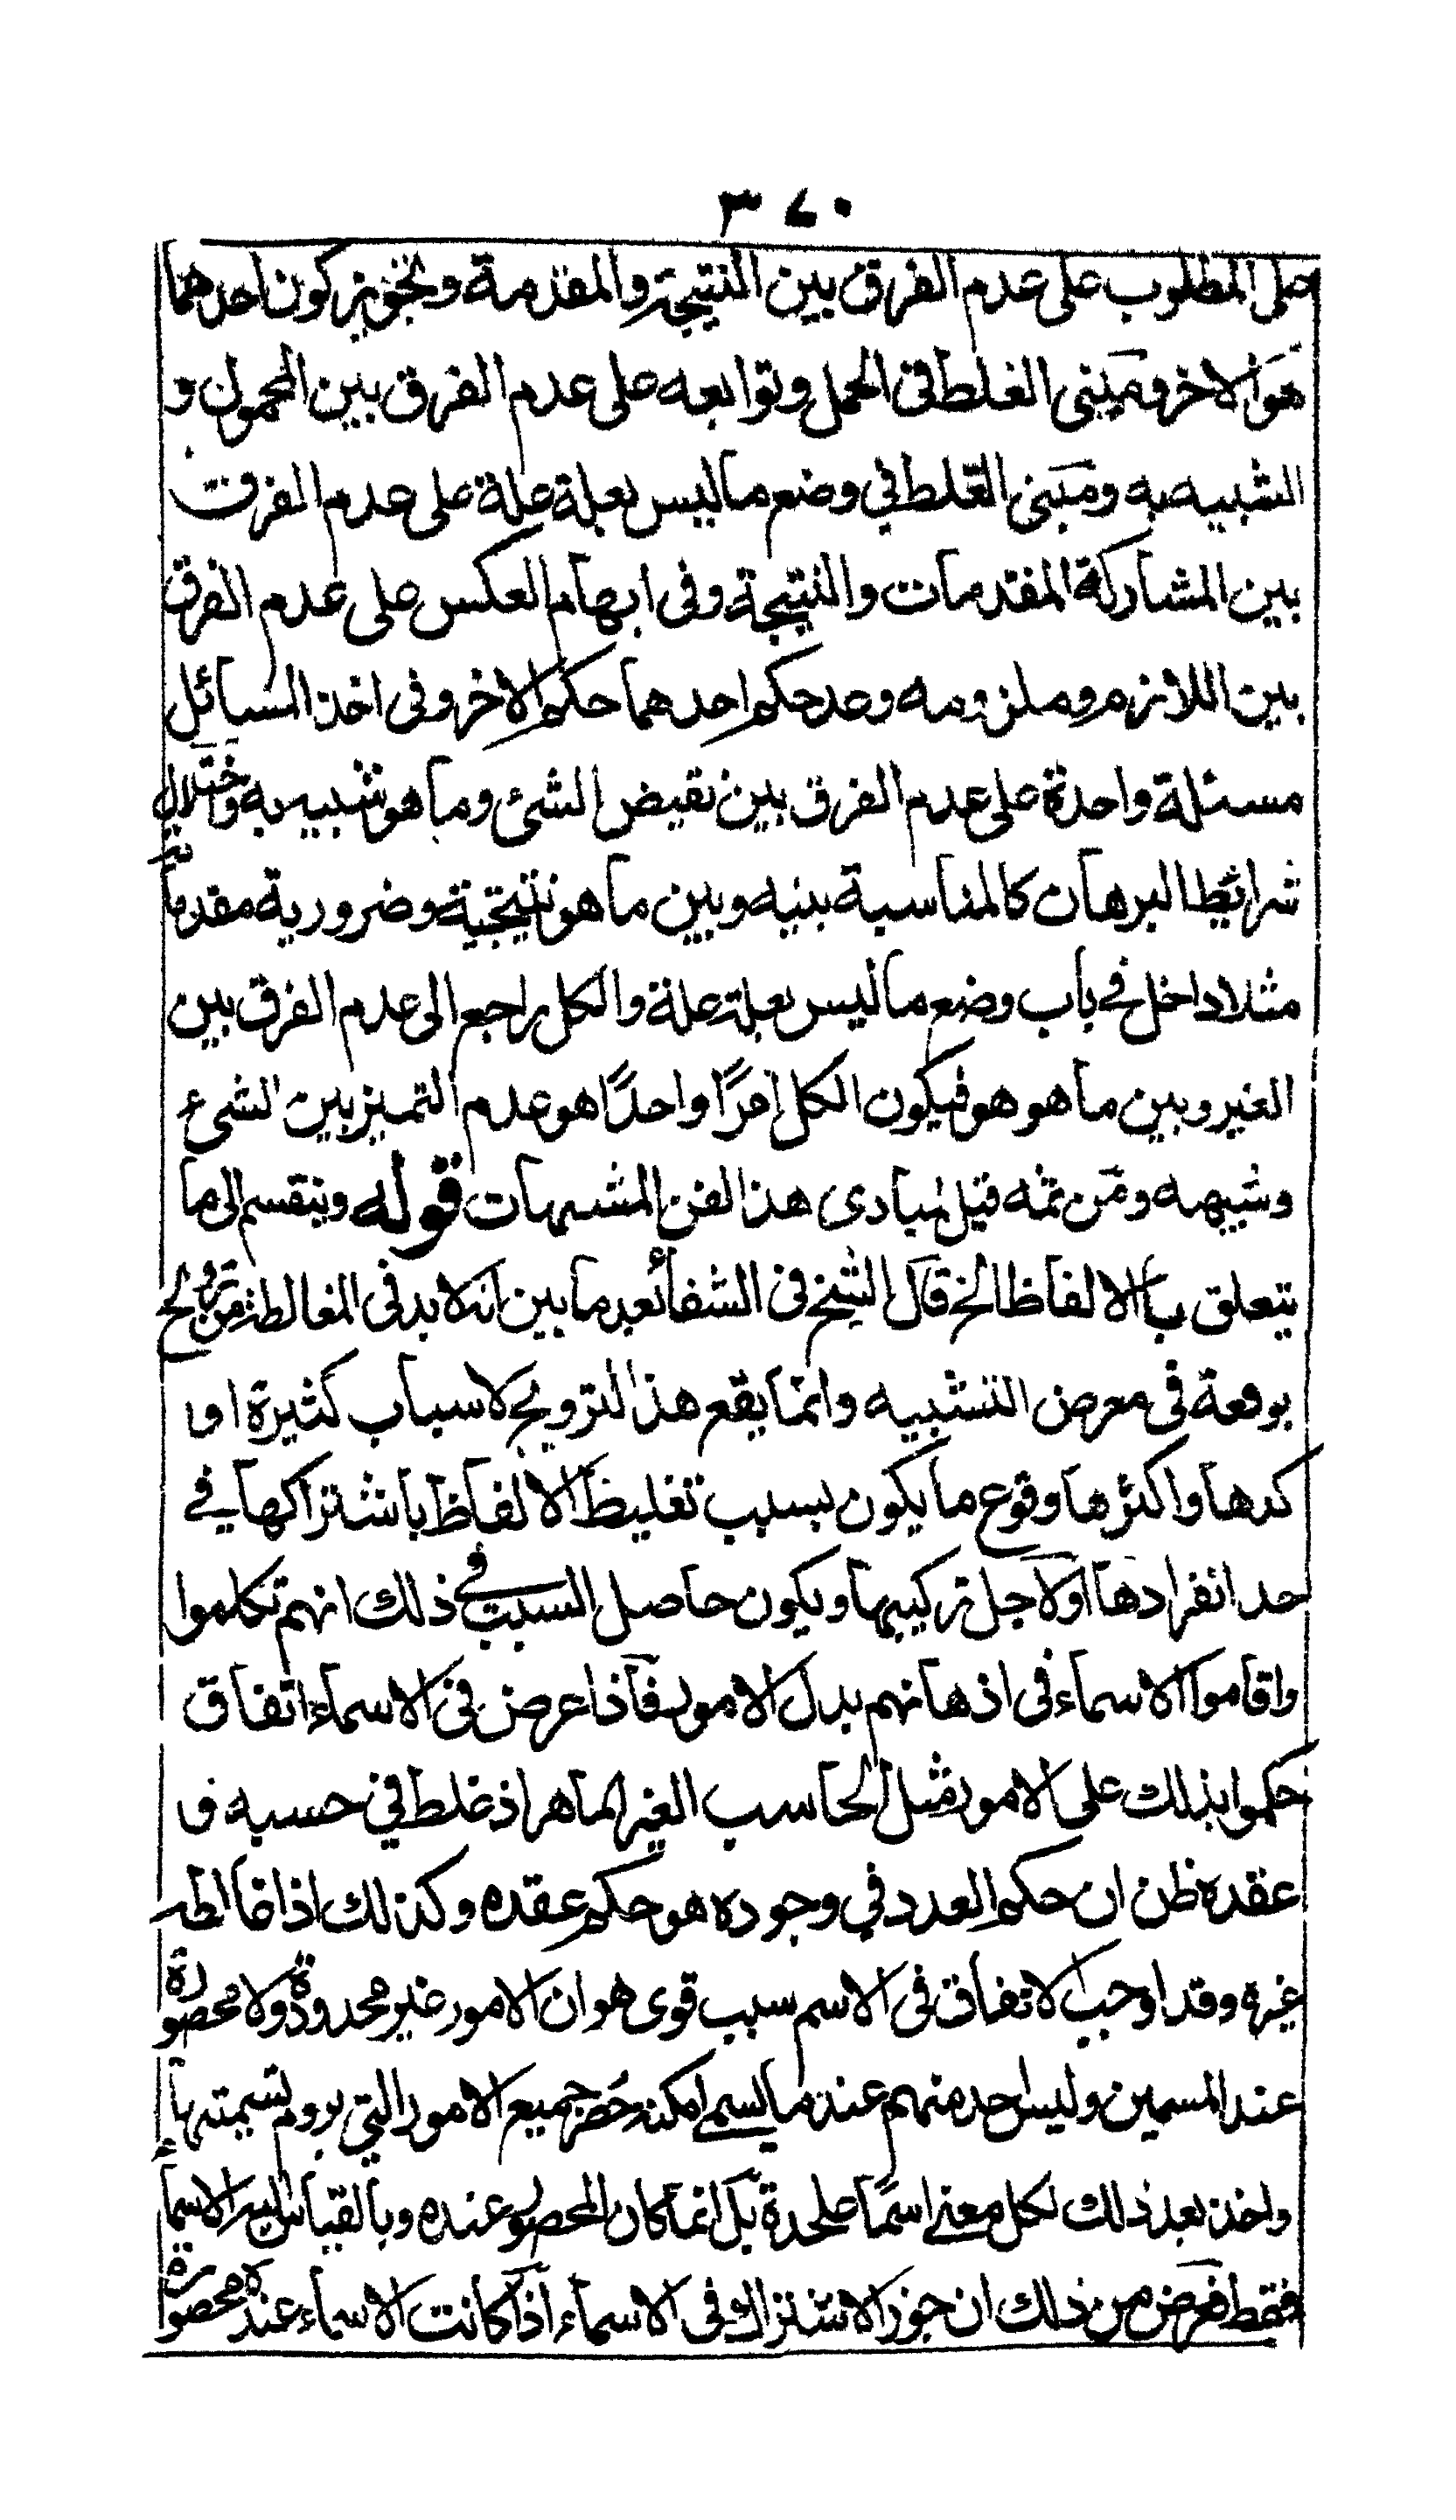 ٣٧٠
على المطلوب على عدم الفرق بين النتيجة والمقدمة وتجويز كون احدهما
هو الاخر ومبنى الغلط فى الحمل وتوابعه على عدم الفرق بين المحمول و
الشبيه به ومبنى الغلط في وضع ما ليس بعلة علة على عدم الفرق
بين المشاركة المقدمات والنتيجة وفى ابهام العكس على عدم الفرق
بين اللازم وملزومه وعد حكم احدهما حكم الاخر وفى اخذ المسائل
مسئلة واحدة على عدم الفرق بين نقيض الشئ وما هو شبيه به واختلال
شرائط البرهان كالمناسبة بينه وبين ما هو نتيجة وضرورية مقدماته
مثلا داخل في باب وضع ما ليس بعلة علة والكل راجع الى عدم الفرق بين
الغير وبين ما هو هو فيكون الكل امرًا واحدًا هو عدم التميز بين الشىء
وشبيهه ومن ثمه قيل لمبادى هذا الفن المشبهات قوله وينقسم الى ما
يتعلق بالالفاظ الخ قال الشيخ فى الشفاء بعد ما بين انه لا بد فى المغالطة من ترويج
بوقعة فى معرض التشبيه وانما يقع هذا الترويج لاسباب كثيرة او
كدها واكثرها وقوع ما يكون بسبب تغليظ الالفاظ باشتراكها في
حد انفرادها او لاجل تركيبها ويكون حاصل السبب في ذلك انهم تكلموا
واقاموا الاسماء فى اذهانهم بدل الامور فاذا عرض فى الاسماء اتفاق
حكموا بذلك على الامور مثل الحاسب الغير الماهر اذ غلط في حسبه و
عقده ظن ان حكم العدد في وجوده هو حكم عقده وكذلك اذا غالطه
غيره وقد اوجب الاتفاق فى الاسم سبب قوى هو ان الامور غير محدودة ولا محصورة
عند المسمين وليس احد منهم عند ما يسمى امكنه حصر جميع الامور التي يروم تسميتها
واخذ بعد ذلك لكل معنى اسمًا علحدة بل انما كان المحصور عنده وبالقياس اليه الاسماء
فقط فعرض من ذلك ان جوز الاشتراك فى الاسماء اذا كانت الاسماء عنده محصورة